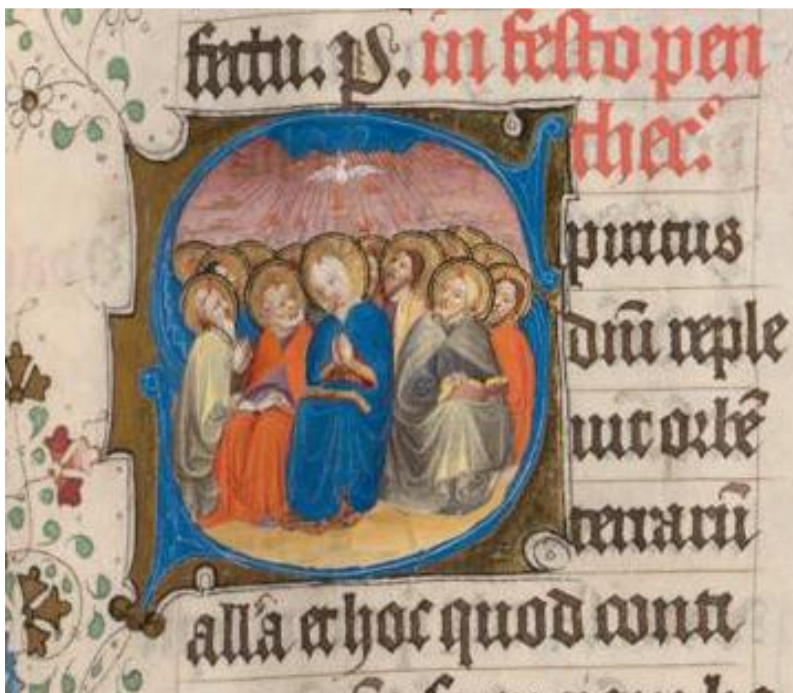 fectu. P. in festo pen
thec̄.
Spiritus
dn̄i reple
uit orbē
terrarū
allā et hoc quod conti